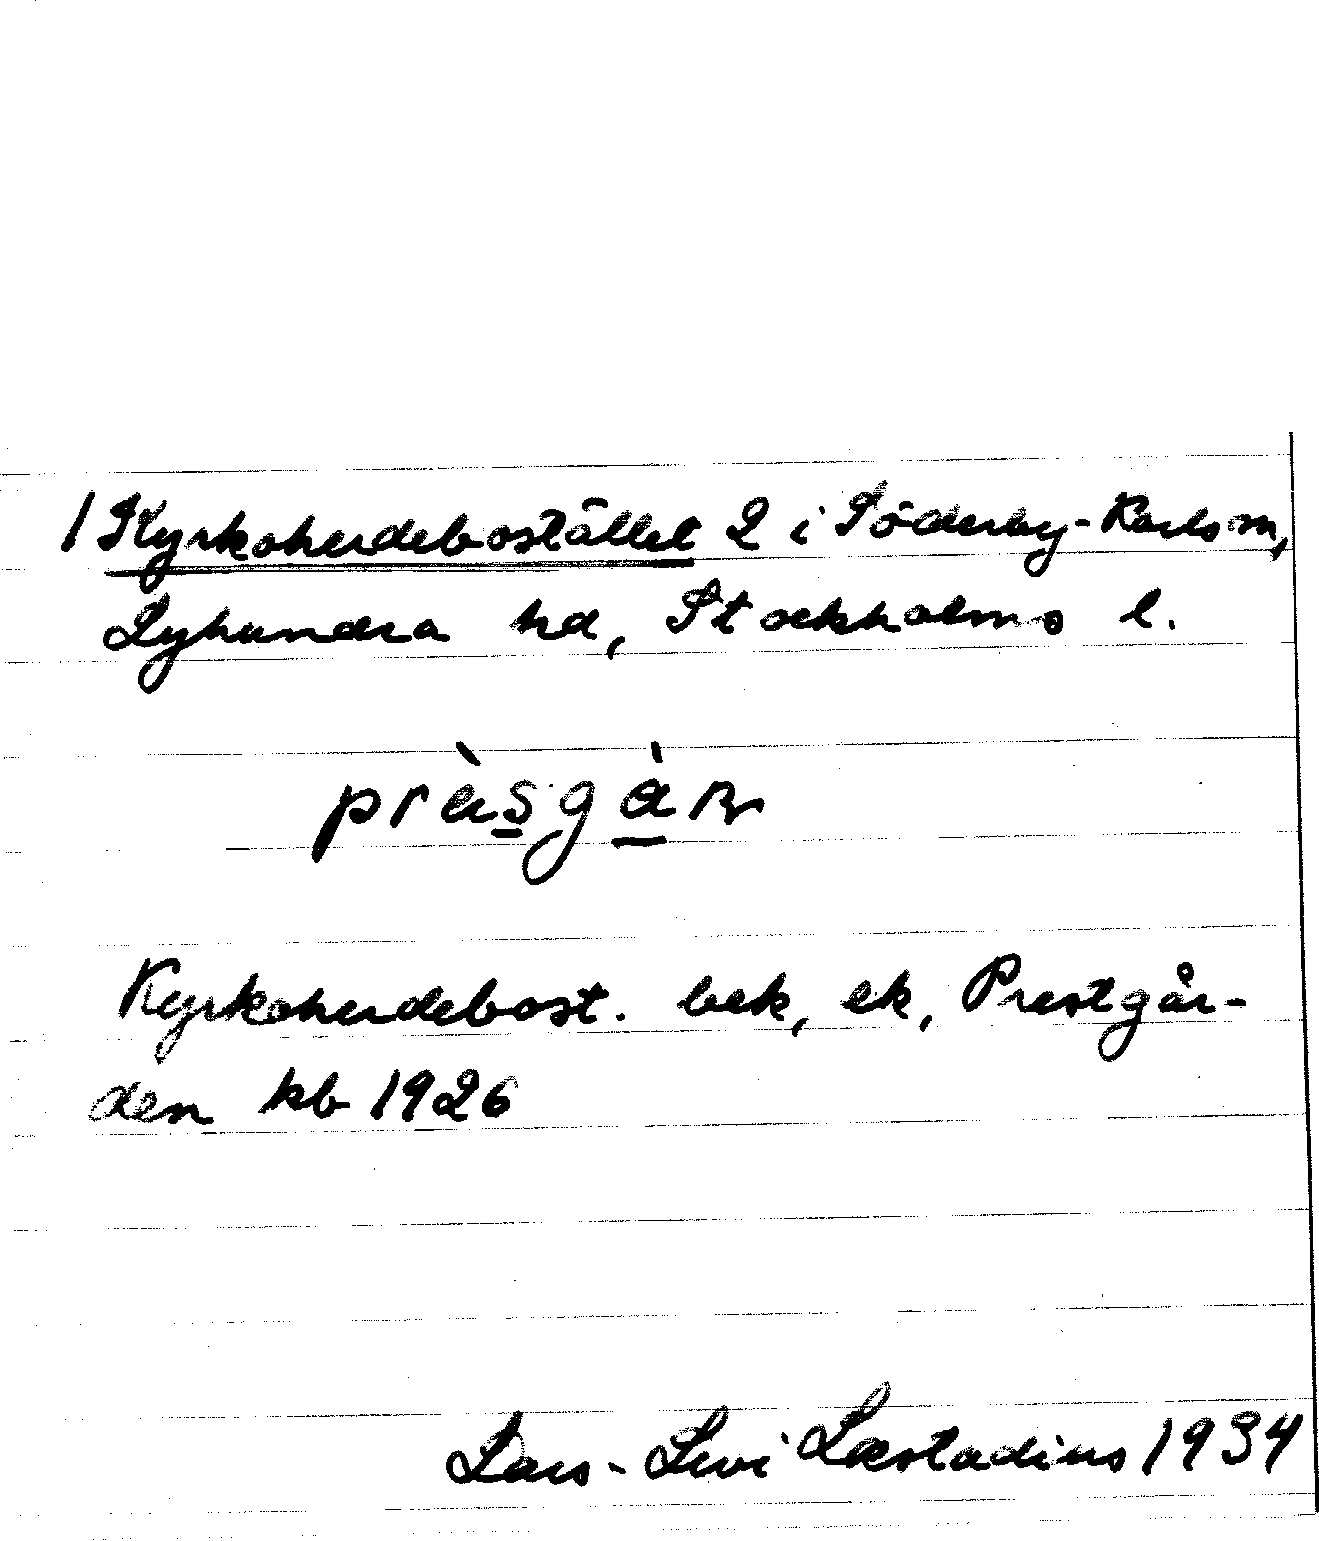 1 Kyrkoherdebostället 2 i Söderby-Karls sn,
Lyhundra hd, Stockholms l.
Kyrkoherdebost. bek, ek, Prestgår-
den kb 1926
Lars-Levi Læstadius 1934